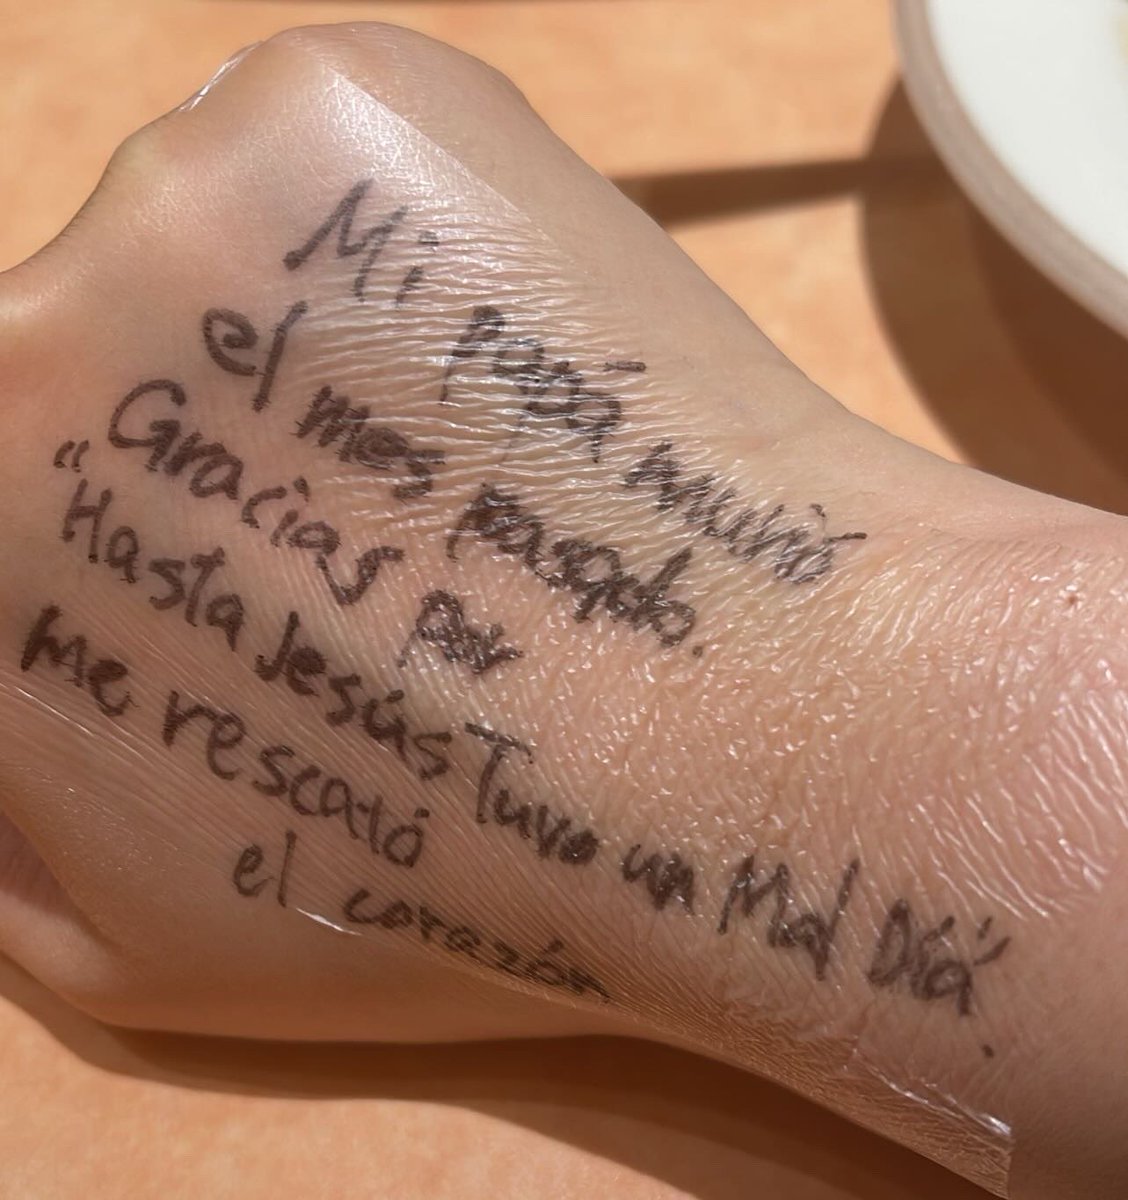 Mi papá murió
el mes pasado.
Gracias por
"Hasta Jesús Tuvo un Mal Día".
Me rescató
el corazón